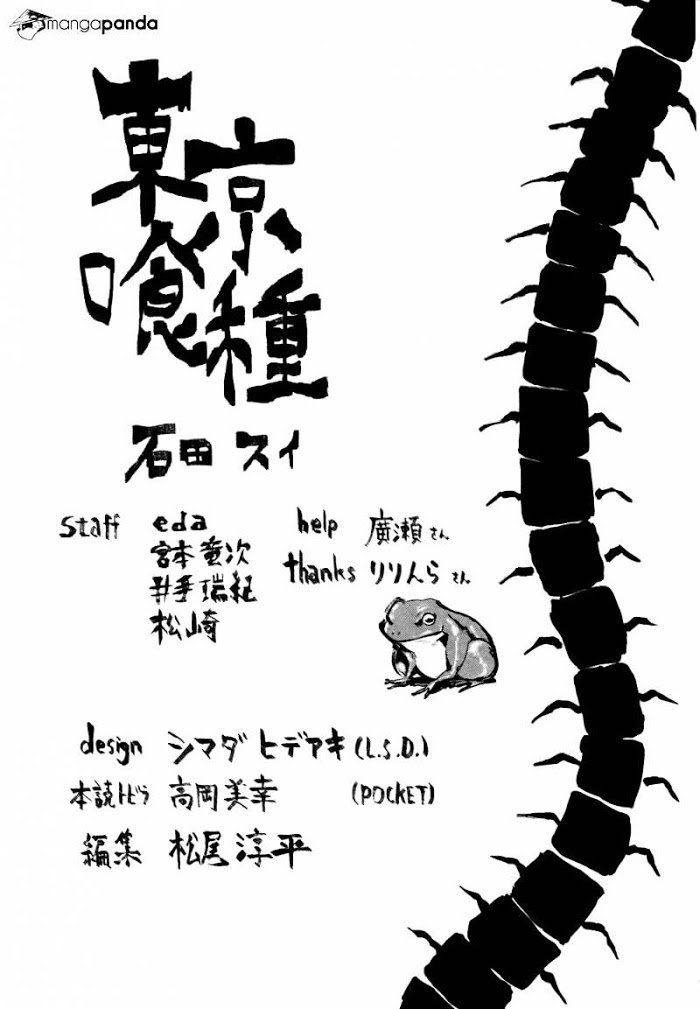 mangapanda
東京
喰種
石田スイ
staff eda
宮本竜次
井手瑞紀
松崎
help 廣瀬さん
thanks りりんらさん
design シマダヒデアキ(L.S.D.)
本読トビラ 高岡美幸 (POCKET)
編集 松尾淳平